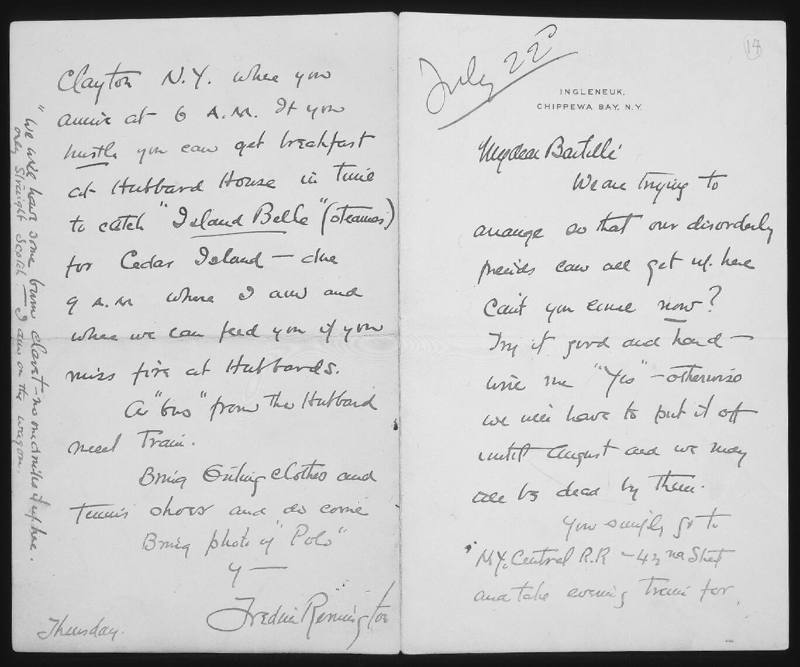 18
July 22nd
INGLENEUK,
CHIPPEWA BAY, N.Y.
My dear Bartlett
We are trying to
arrange so that our disorderly
friends can all get up here
Can't you come now?
Try it good and hard —
wire me "Yes" — otherwise
we will have to put it off
until August and we may
all be dead by then.
You simply go to
N.Y. Central R.R — 42nd Street
and take evening train for
Clayton N.Y. where you
arrive at 6 A.M. If you
hustle you can get breakfast
at Hubbard House in time
to catch "Island Belle" (steamer)
for Cedar Island — due
9 A.M where I am and
where we can feed you if you
miss fire at Hubbards.
A "bus" from the Hubbard
meet train.
Bring Outing clothes and
Tennis shoes and do come
Bring photo of "Polo"
Y —
Frederic Remington
Thursday.
"We will have some bum claret — no midnites up here.
only straight Scotch — I am on the wagon.